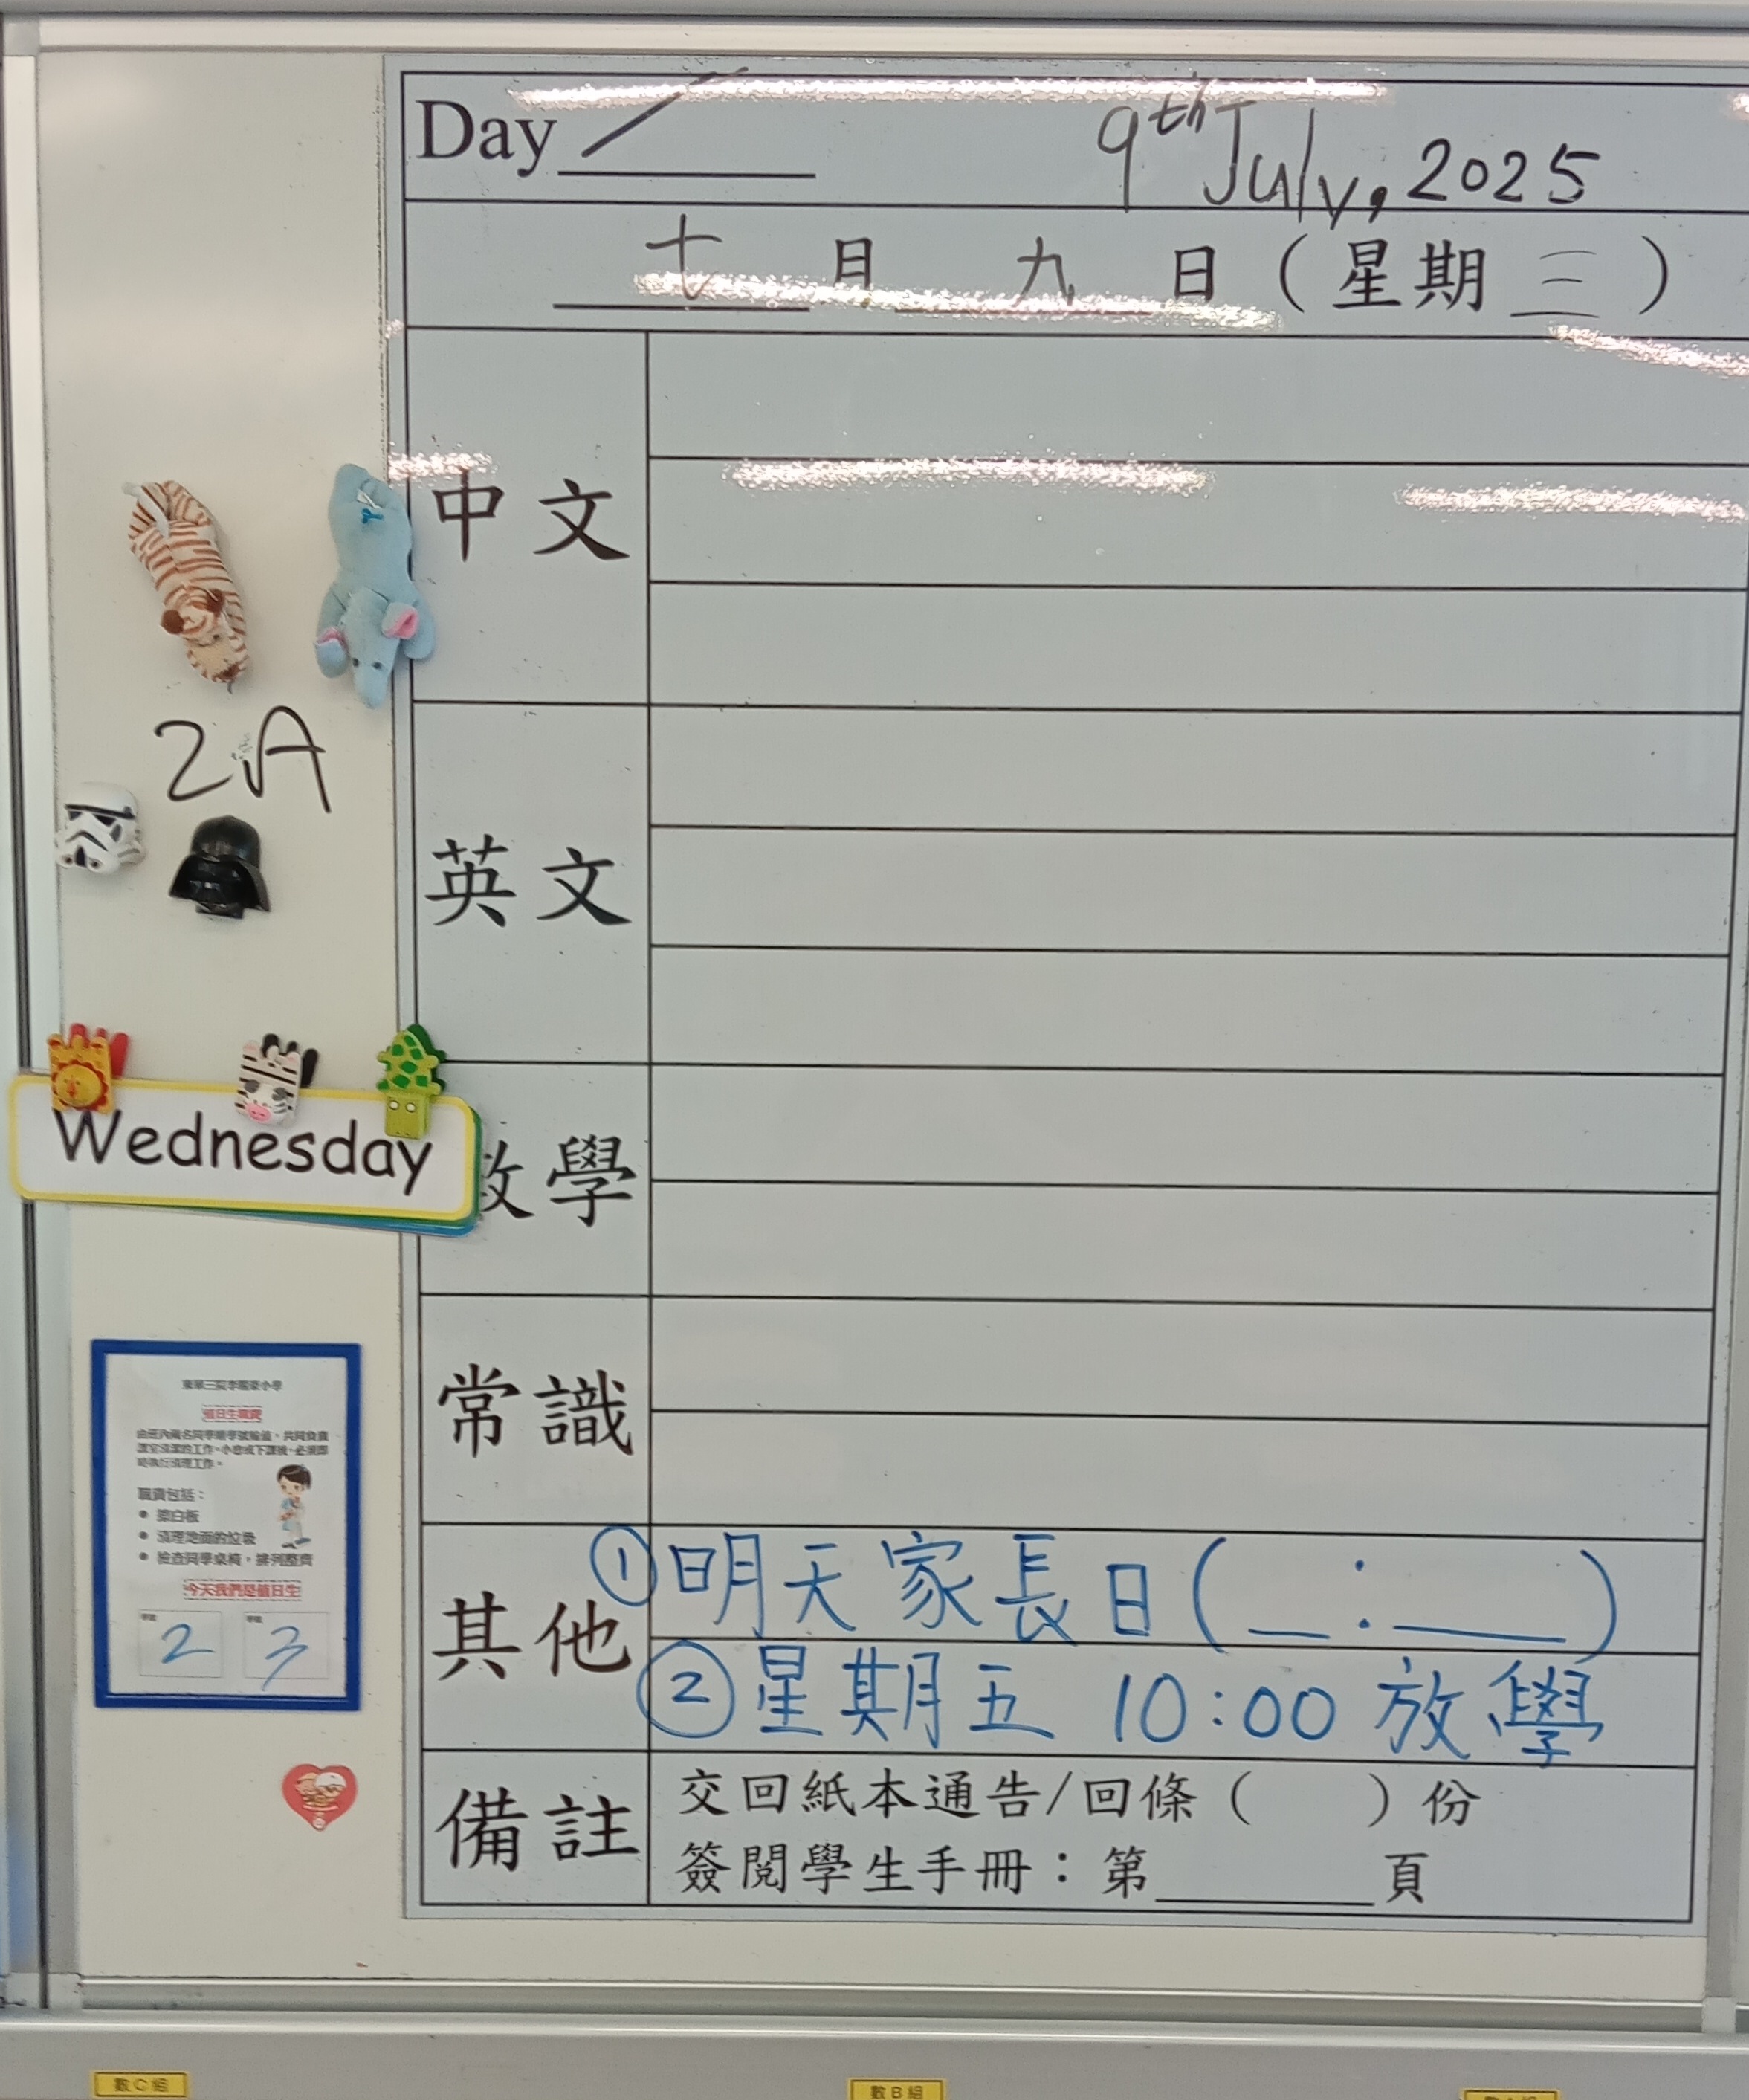 Day / 9th July, 2025
七 月 九 日 ( 星 期 三 )
中 文
2A
英 文
Wednesday
學
常 識
其 他
① 明天家長日 ( _ : __ )
② 星期五 10:00 放學
備 註
交回紙本通告/回條 ( ) 份
簽閱學生手冊：第____頁
值日生職責
由班內兩名同學順學號輪值，共同負責
課室清潔的工作。小息或下課後，必須即
時執行清理工作。
職責包括：
● 擦白板
● 清理地面的垃圾
● 檢查同學桌椅，排列整齊
今天我們是值日生
學號 學號
2 3
數C組
數B組